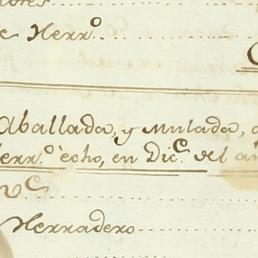 e Herr.º
aballada, y Mulada,
err.º echo, en Dic.e del a
Herradero